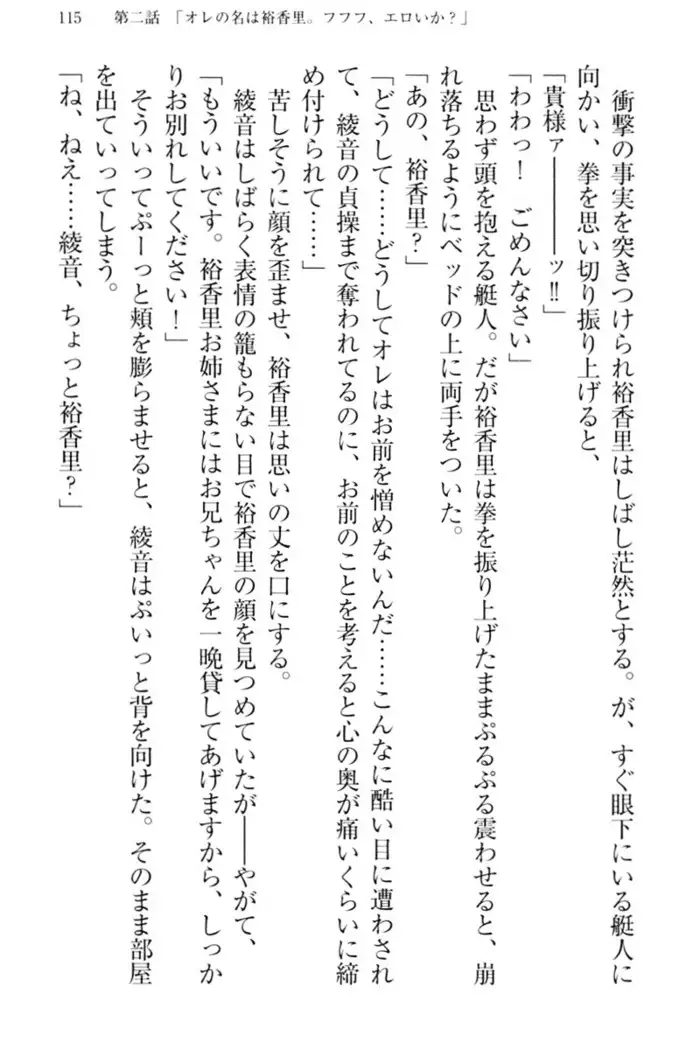 115　第二話　「オレの名は裕香里。フフフ、エロいか？」
　衝撃の事実を突きつけられ裕香里はしばし茫然とする。が、すぐ眼下にいる艇人に
向かい、拳を思い切り振り上げると、
「貴様ァ――――ッ!!」
「わわっ！　ごめんなさい」
　思わず頭を抱える艇人。だが裕香里は拳を振り上げたままぷるぷる震わせると、崩
れ落ちるようにベッドの上に両手をついた。
「あの、裕香里？」
「どうして……どうしてオレはお前を憎めないんだ……こんなに酷い目に遭わされ
て、綾音の貞操まで奪われてるのに、お前のことを考えると心の奥が痛いくらいに締
め付けられて……」
　苦しそうに顔を歪ませ、裕香里は思いの丈を口にする。
　綾音はしばらく表情の籠もらない目で裕香里の顔を見つめていたが――やがて、
「もういいです。裕香里お姉さまにはお兄ちゃんを一晩貸してあげますから、しっか
りお別れしてください！」
　そういってぷーっと頬を膨らませると、綾音はぷいっと背を向けた。そのまま部屋
を出ていってしまう。
「ね、ねえ……綾音、ちょっと裕香里？」